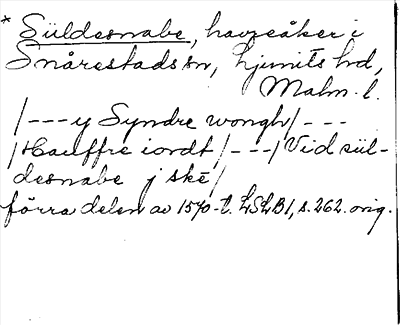 * Süldesnabe, havreåker i
Snårestads sn, Ljunits hd,
Malm. l.
/---y Syndre wongh/---
/Hauffre iordt/---/Vid sül-
desnabe j skē/
förra delen av 1570-t. LSLB1, s. 262. orig.